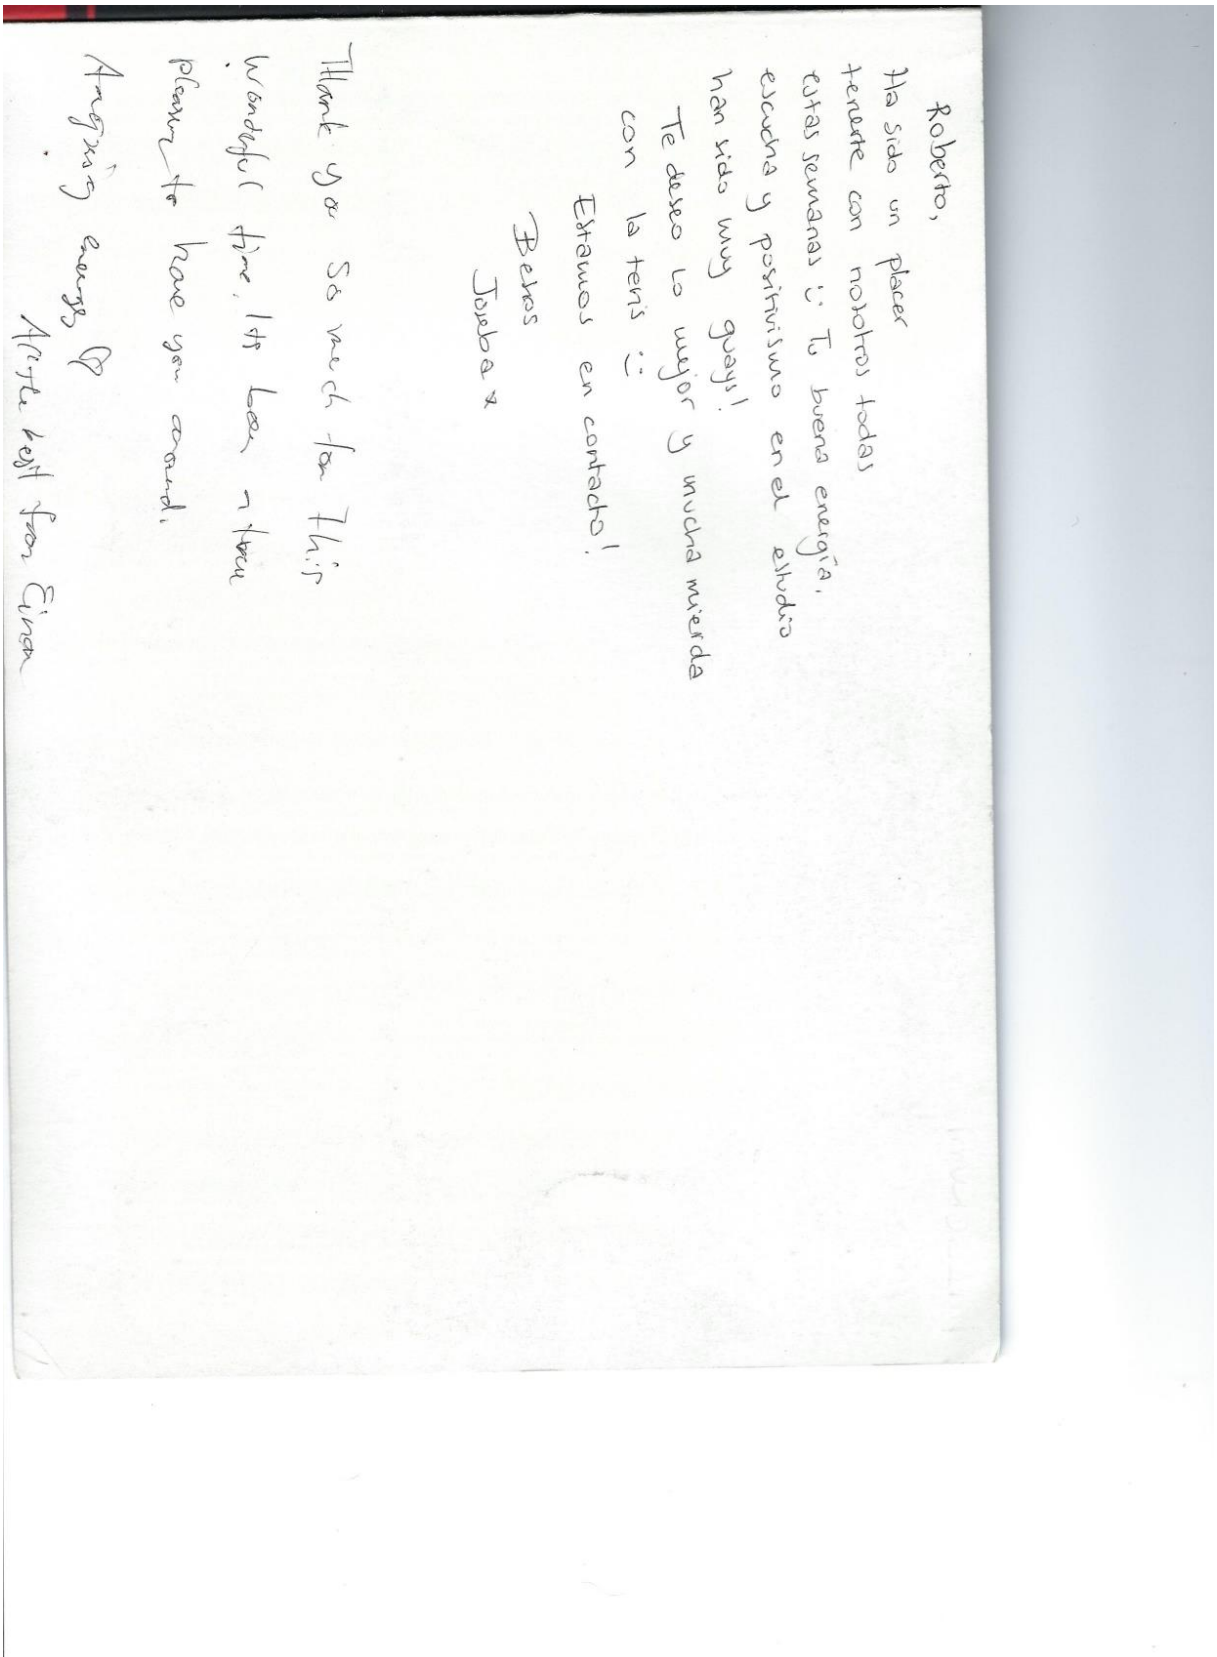 Roberto,
Ha sido un placer
tenerte con nosotros todas
estas semanas :) Tu buena energía,
escucha y positivismo en el estudio
han sido muy guays!
Te deseo lo mejor y mucha mierda
con la tesis :)
Estamos en contacto!
Besos
Joseba *
Thank you so much for This
Wonderful time. Its been a true
pleasure to have you around.
Amazing energy ♡
All the best from Einar